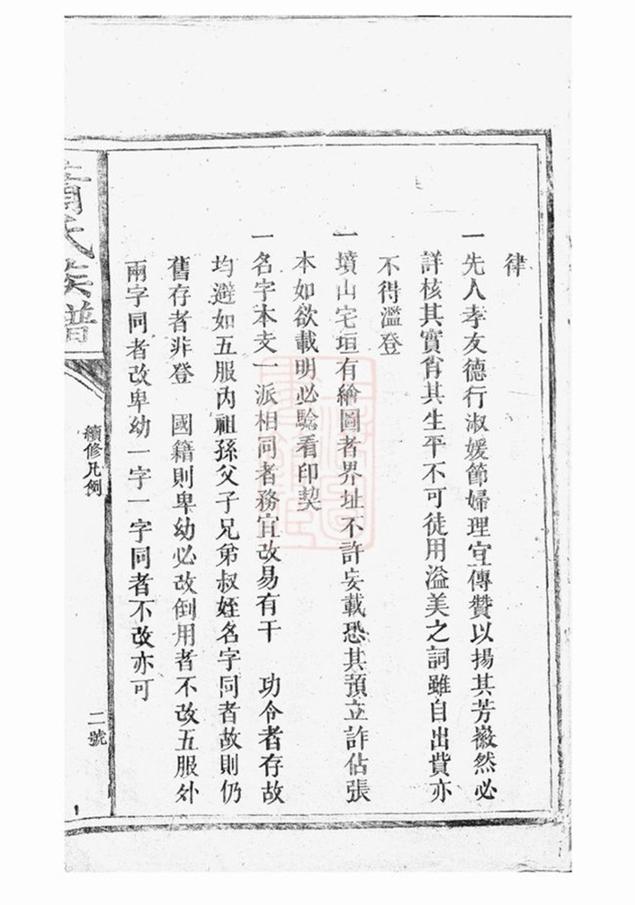 律
一先人孝友德行淑媛節婦理宜傳贊以揚其芳徽然必
詳核其實肖其生平不可徒用溢美之詞雖自出費亦
不得濫登
一墳山宅垣有繪圖者界址不許妄載恐其預立詐佔張
本如欲載明必驗看印契
一名字本支一派相同者務宜改易有干 功令者存故
均避如五服內祖孫父子兄弟叔姪名字同者故則仍
舊存者非登 國籍則卑幼必改倒用者不改五服外
兩字同者改卑幼一字一字同者不改亦可
氏族譜
續修凡例
二號